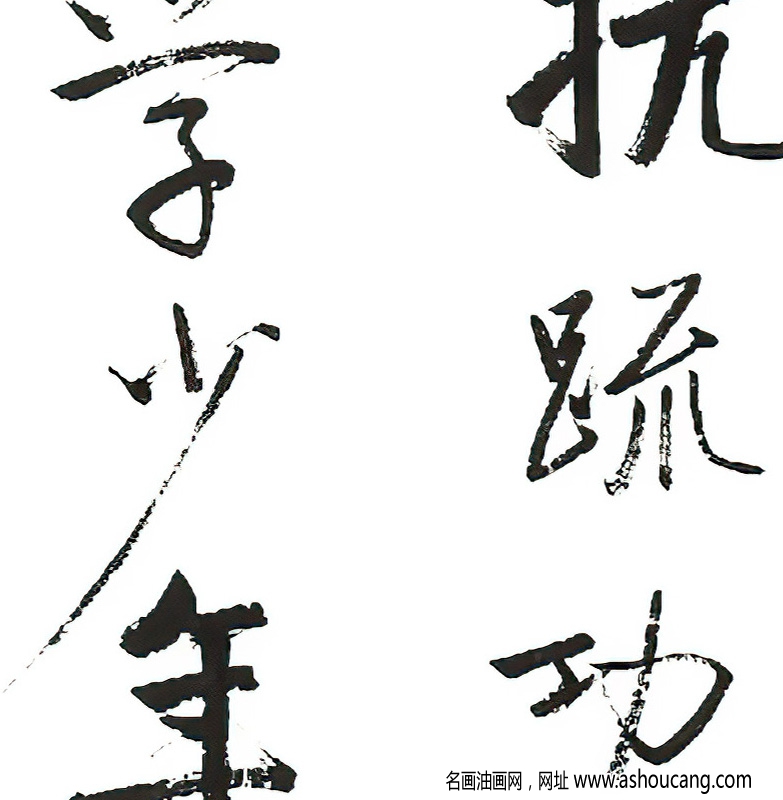 抗疏功
学少年
名画油画网，网址 www.ashoucang.com